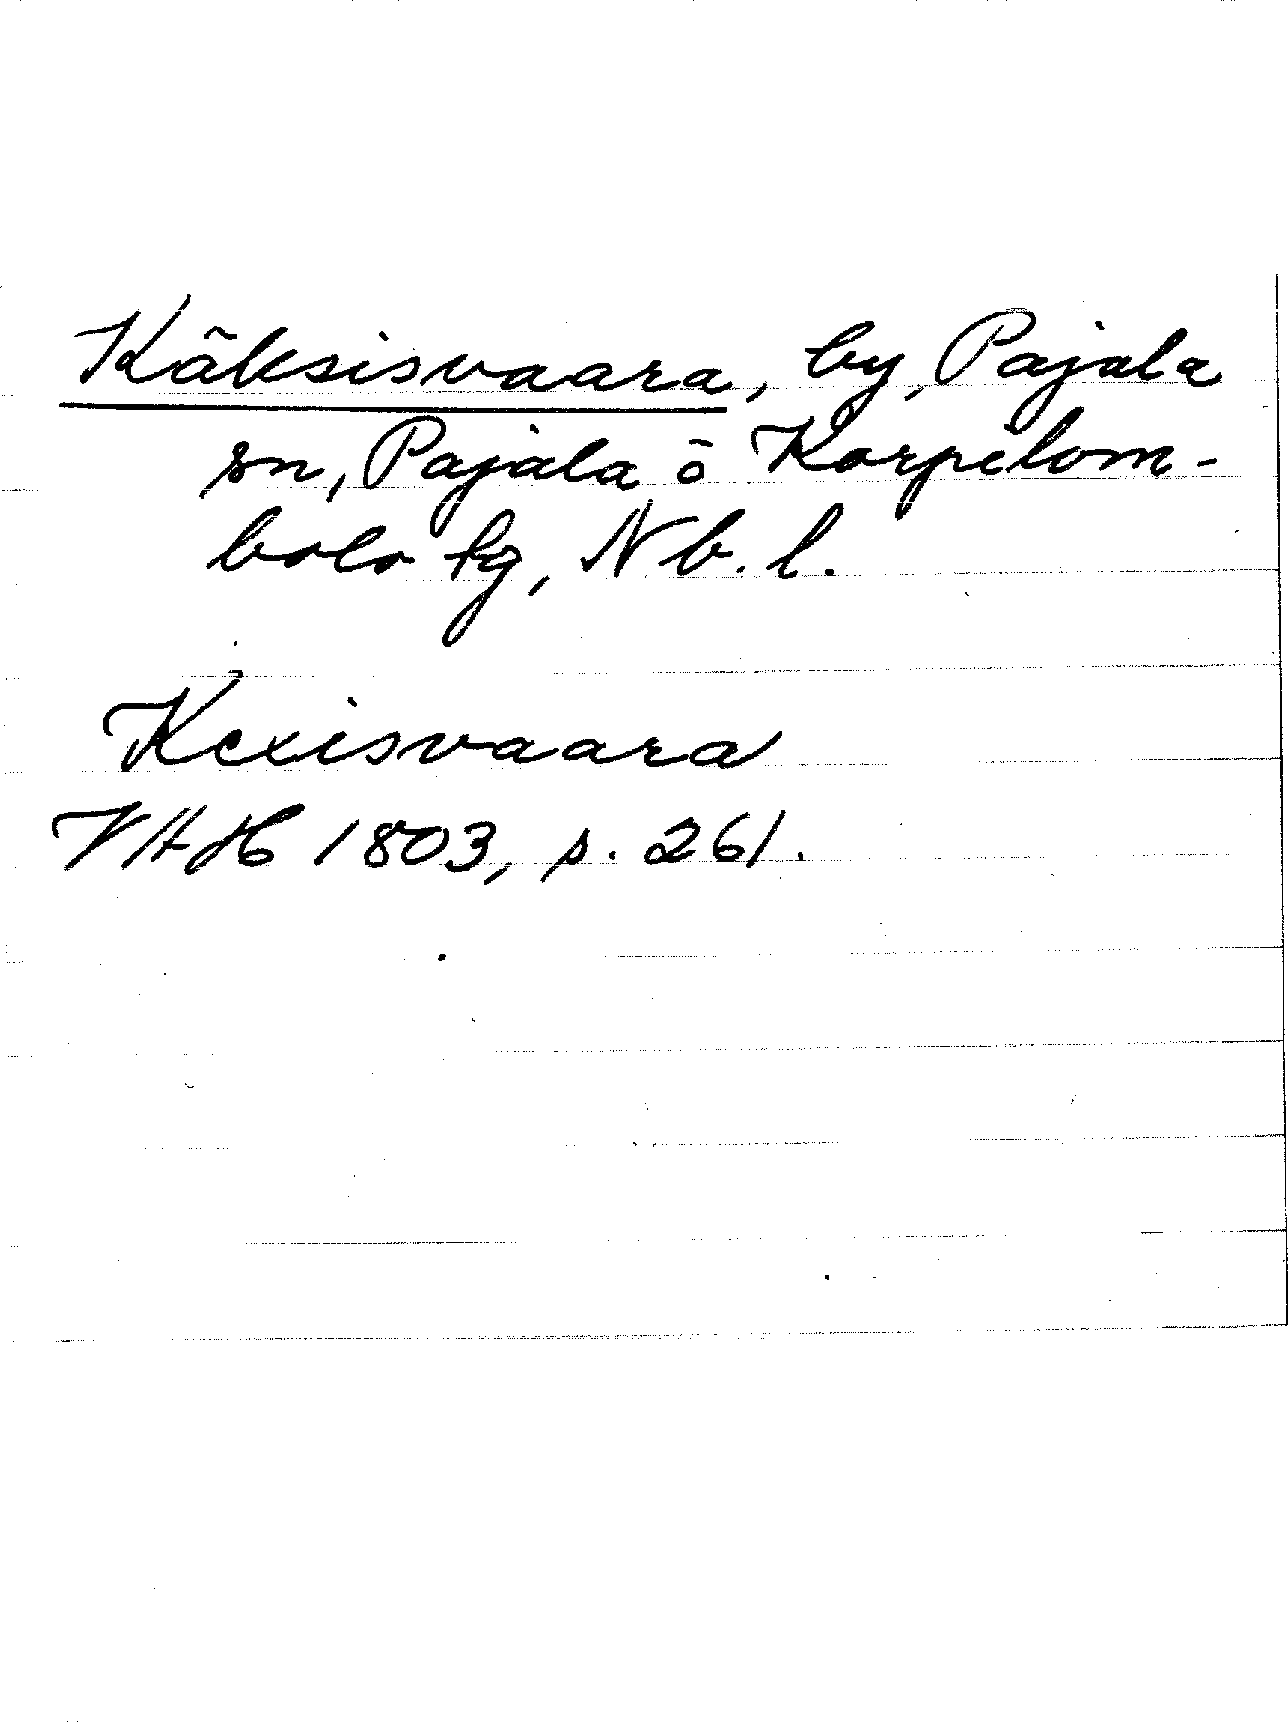 Käksisvaara, by, Pajala
sn, Pajala ö Korpilom-
bolo tg, Nb. l.
Kexisvaara
VAH 1803, s. 261.